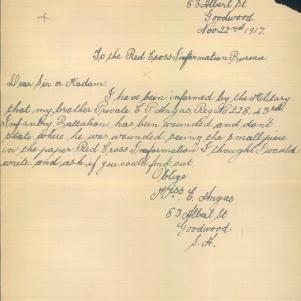 83 Albert St
Goodwood
Nov 22nd 1917.
To the Red Cross Information Bureau
Dear Sir or Madam:
I have been informed by the Military
that my brother Private E. P. Angas, Reg No 228, 43rd
Infantry Battalion has been wounded and don't
state where he was wounded, seeing the small piece
in the paper Red Cross Information I thought I would
write and ask if you could find out
Oblige
Miss E. Angas
83 Albert St
Goodwood
S. A.